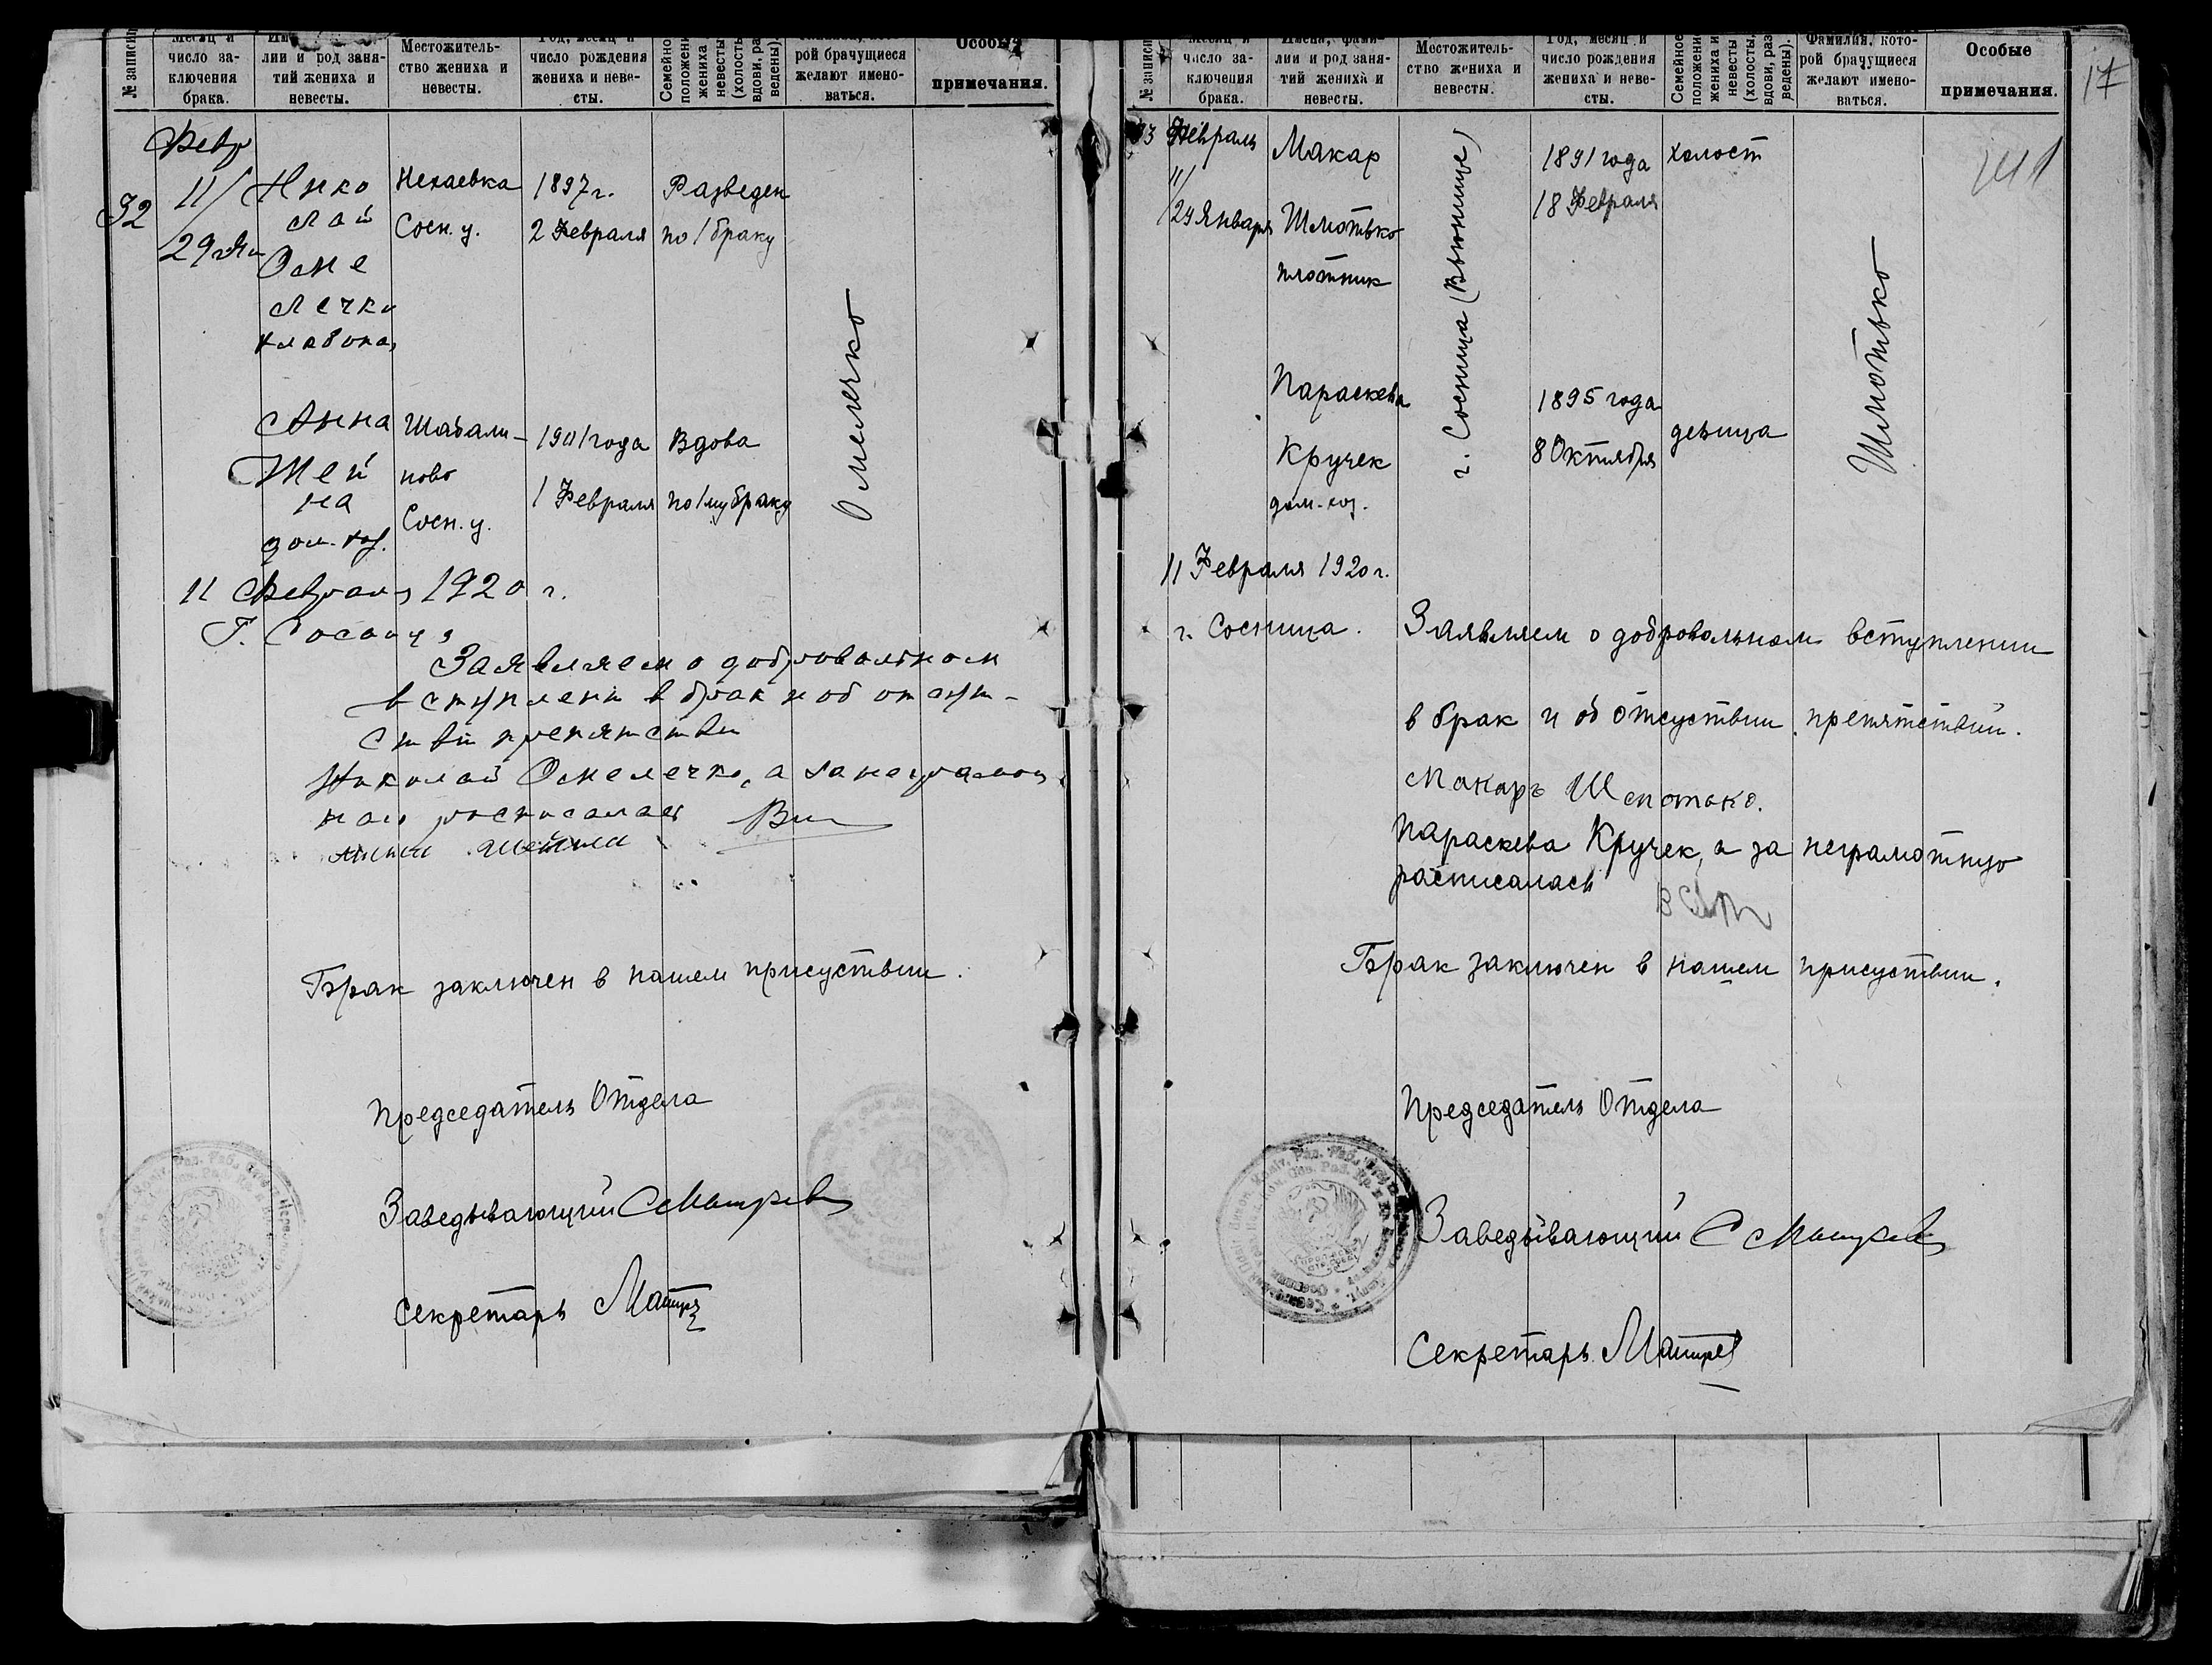 № записи
Месяц и число заключения брака.
лии и род занятий жениха и невесты.
Местожительство жениха и невесты.
Год, месяц и число рождения жениха и невесты.
Семейное положение жениха невесты (холосты, вдовы, разведены).
рой брачущиеся желают именоваться.
Особые примечания.
32
Февр
11/
29 Ян
Нико
лай
Оме
лечко
Нехаевка
Сосн. у.
1897 г.
2 Февраля
Разведен
по 1 браку
Омелечко
Анна
Шей
на
дом. хоз.
Шабали-
ново
Сосн. у.
1901 года
1 Февраля
Вдова
по 1му браку
11 Февраля 1920 г.
Г. Сосница
Заявляем о добровольном
вступлени в брак и об отсут-
стви препятстви
Николай Омелечко, а за неграмот
ную росписалась
Анна Шейна
Брак заключен в нашем присуствии.
Председатель Отдела
Заведывающий
Секретарь
№ записи
Месяц и число заключения брака.
Имена, фамилии и род занятий жениха и невесты.
Местожительство жениха и невесты.
Год, месяц и число рождения жениха и невесты.
Семейное положение жениха и невесты (холосты, вдовы, разведены).
Фамилия, которой брачущиеся желают именоваться.
Особые примечания.
17
33
Февраль
11/
29 Января
Макар
Шмотько
плотник
г. Сосница (Вьюнище)
1891 года
18 Февраля
холост
Шмотько
Параскева
Кручек
дом. хоз.
1895 года
8 Октября
девица
11 Февраля 1920 г.
г. Сосница. Заявляем о добровольном вступлении
в брак и об отсуствии препятствий.
Макаръ Шмотько.
Параскева Кручек, а за неграмотную
расписалась
Брак заключен в нашем присуствии.
Председатель Отдела
Заведывающий
Секретарь